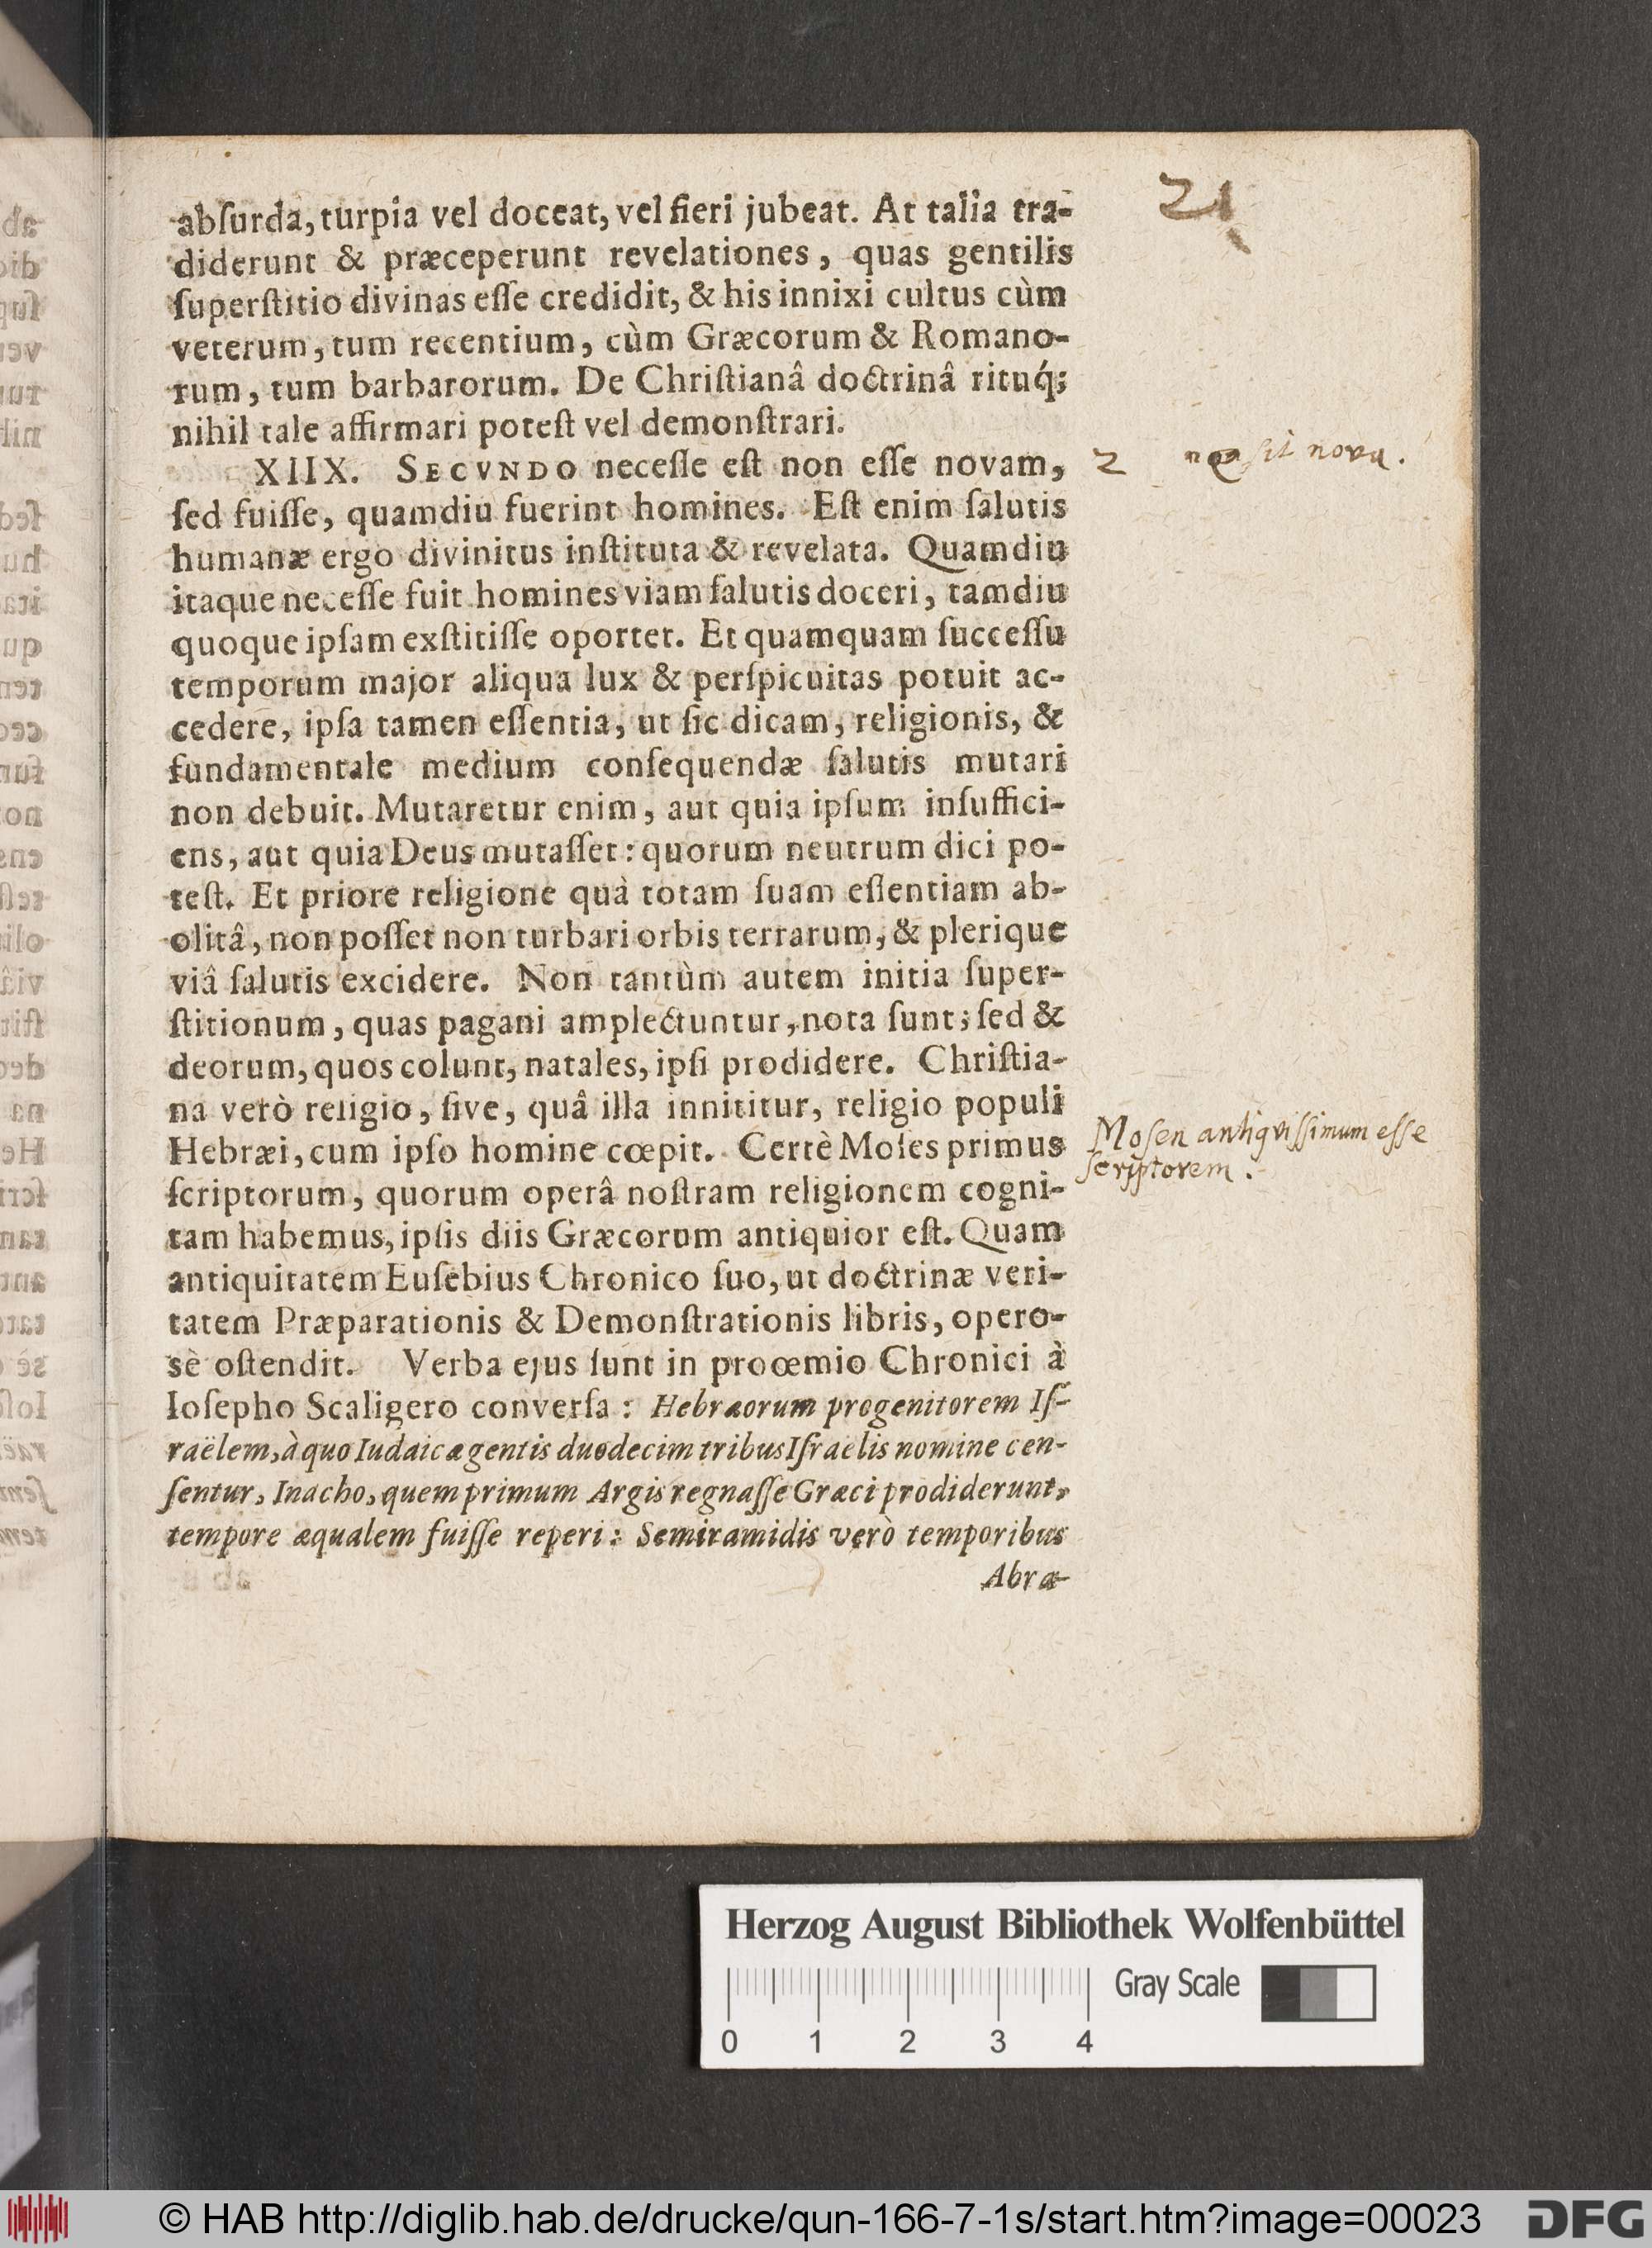 21
abſurda, turpia vel doceat, vel fieri jubeat. At talia tra-
diderunt & præceperunt revelationes, quas gentilis
ſuperſtitio divinas eſſe credidit, & his innixi cultus cùm
veterum, tum recentium, cùm Græcorum & Romano-
rum, tum barbarorum. De Chriſtianâ doctrinâ rituq́;
nihil tale affirmari poteſt vel demonſtrari.
XIIX. SECVNDO neceſſe eſt non eſſe novam,
2 non ſit nova.
ſed fuiſſe, quamdiu fuerint homines. Eſt enim ſalutis
humanæ ergo divinitus inſtituta & revelata. Quamdiu
itaque neceſſe fuit homines viam ſalutis doceri, tamdiu
quoque ipſam exſtitiſſe oportet. Et quamquam ſucceſſu
temporum major aliqua lux & perſpicuitas potuit ac-
cedere, ipſa tamen eſſentia, ut ſic dicam, religionis, &
fundamentale medium conſequendæ ſalutis mutari
non debuit. Mutaretur enim, aut quia ipſum inſuffici-
ens, aut quia Deus mutaſſet: quorum neutrum dici po-
teſt. Et priore religione quà totam ſuam eſſentiam ab-
olitâ, non poſſet non turbari orbis terrarum, & plerique
viâ ſalutis excidere. Non tantùm autem initia ſuper-
ſtitionum, quas pagani amplectuntur, nota ſunt; ſed &
deorum, quos colunt, natales, ipſi prodidere. Chriſtia-
na verò religio, ſive, quâ illa innititur, religio populi
Hebræi, cum ipſo homine cœpit. Certè Moſes primus
ſcriptorum, quorum operâ noſtram religionem cogni-
Moſen antiqviſſimum eſſe
ſcriptorem.
tam habemus, ipſis diis Græcorum antiquior eſt. Quam
antiquitatem Euſebius Chronico ſuo, ut doctrinæ veri-
tatem Præparationis & Demonſtrationis libris, opero-
sè oſtendit. Verba ejus ſunt in proœmio Chronici à
Ioſepho Scaligero converſa: Hebræorum progenitorem Iſ-
raëlem, à quo Iudaicæ gentis duodecim tribus Iſraelis nomine cen-
ſentur, Inacho, quem primum Argis regnaſſe Græci prodiderunt,
tempore æqualem fuiſſe reperi: Semiramidis verò temporibus
Abra-
Herzog August Bibliothek Wolfenbüttel
Gray Scale
0 1 2 3 4
© HAB http://diglib.hab.de/drucke/qun-166-7-1s/start.htm?image=00023
DFG